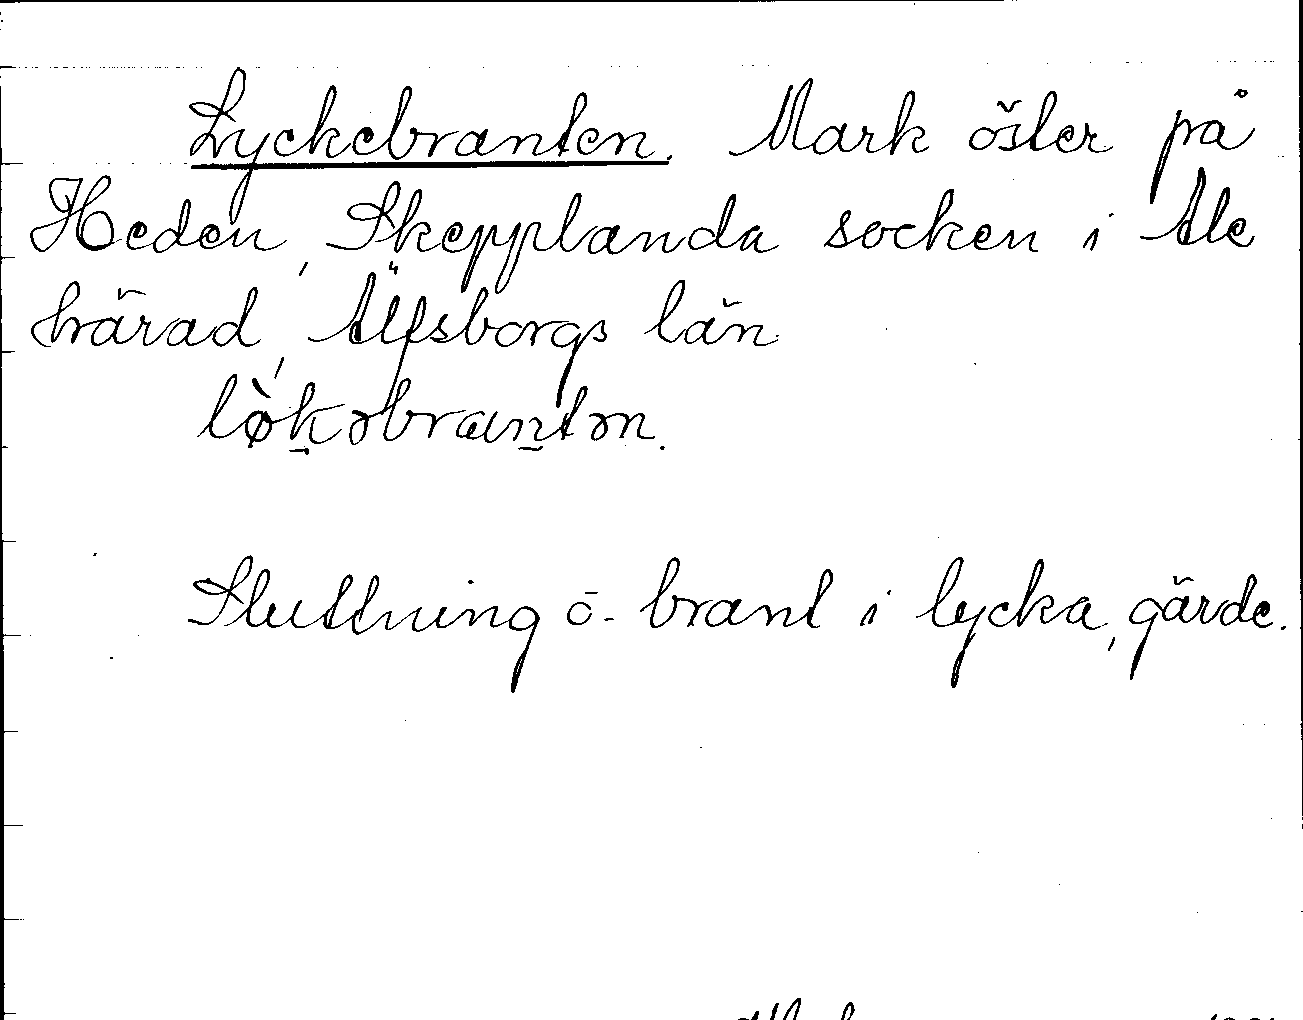 Lyckebranten. Mark öster på
Heden, Skepplanda socken i Ale
härad, Älfsborgs län
lø̀kəbrantən.
Sluttning o. brant i lycka, gärde.